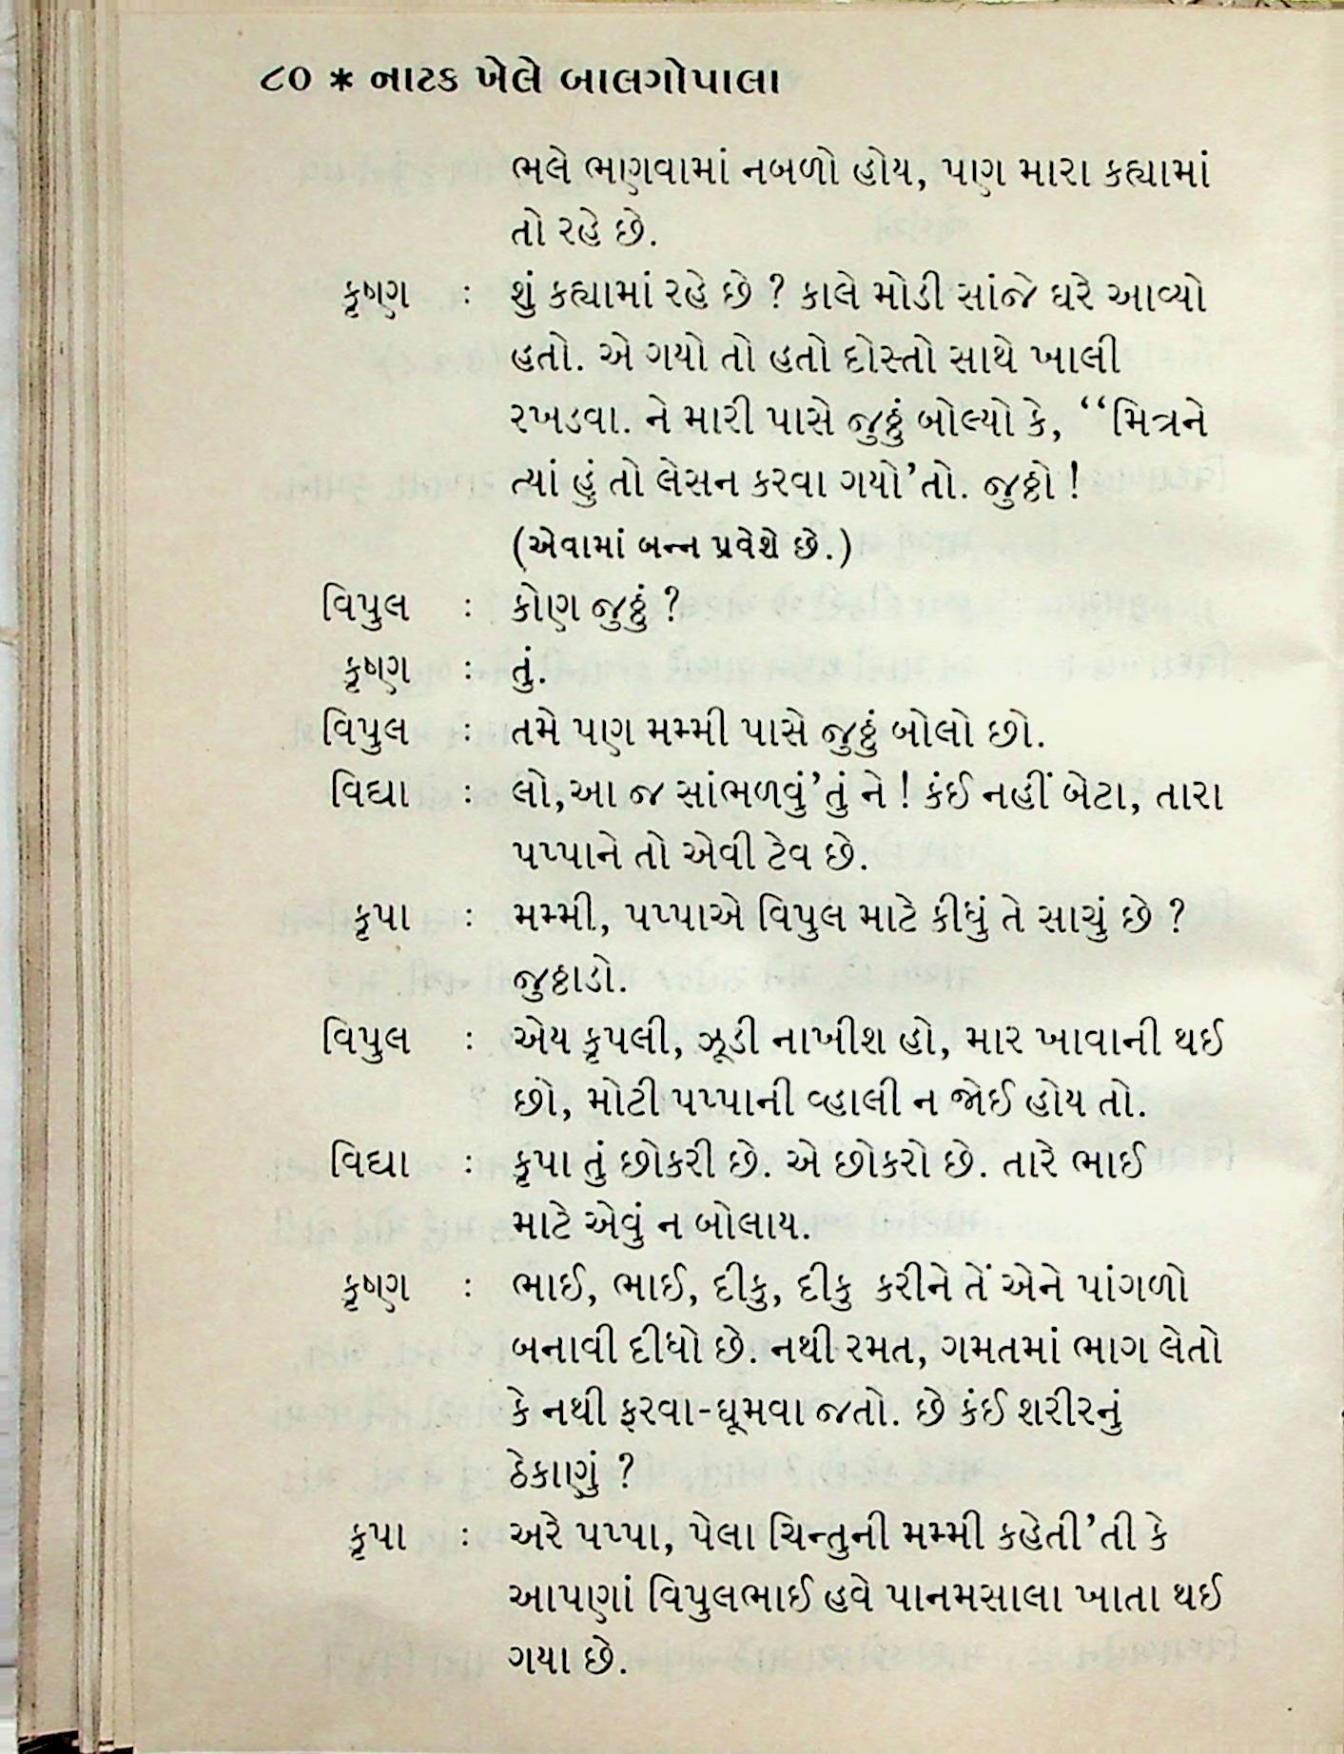 ૮૦ * નાટક ખેલે બાલગોપાલા
ભલે ભણવામાં નબળો હોય, પણ મારા કહ્યામાં
તો રહે છે.
કૃષ્ણ : શું કહ્યામાં રહે છે ? કાલે મોડી સાંજે ઘરે આવ્યો
હતો. એ ગયો તો હતો દોસ્તો સાથે ખાલી
રખડવા. ને મારી પાસે જુઠ્ઠું બોલ્યો કે, ‘‘મિત્રને
ત્યાં હું તો લેસન કરવા ગયો’તો. જુઠ્ઠો !
(એવામાં બન્ન પ્રવેશે છે.)
વિપુલ : કોણ જુઠ્ઠું ?
કૃષ્ણ : તું.
વિપુલ : તમે પણ મમ્મી પાસે જુઠ્ઠું બોલો છો.
વિદ્યા : લો,આ જ સાંભળવું’તું ને ! કંઈ નહીં બેટા, તારા
પપ્પાને તો એવી ટેવ છે.
કૃપા : મમ્મી, પપ્પાએ વિપુલ માટે કીધું તે સાચું છે ?
જુઠ્ઠાડો.
વિપુલ : એય કૃપલી, ઝૂડી નાખીશ હો, માર ખાવાની થઈ
છો, મોટી પપ્પાની વ્હાલી ન જોઈ હોય તો.
વિદ્યા : કૃપા તું છોકરી છે. એ છોકરો છે. તારે ભાઈ
માટે એવું ન બોલાય.
કૃષ્ણ : ભાઈ, ભાઈ, દીકુ, દીકુ કરીને તેં એને પાંગળો
બનાવી દીધો છે. નથી રમત, ગમતમાં ભાગ લેતો
કે નથી ફરવા-ઘૂમવા જતો. છે કંઈ શરીરનું
ઠેકાણું ?
કૃપા : અરે પપ્પા, પેલા ચિન્તુની મમ્મી કહેતી’તી કે
આપણાં વિપુલભાઈ હવે પાનમસાલા ખાતા થઈ
ગયા છે.